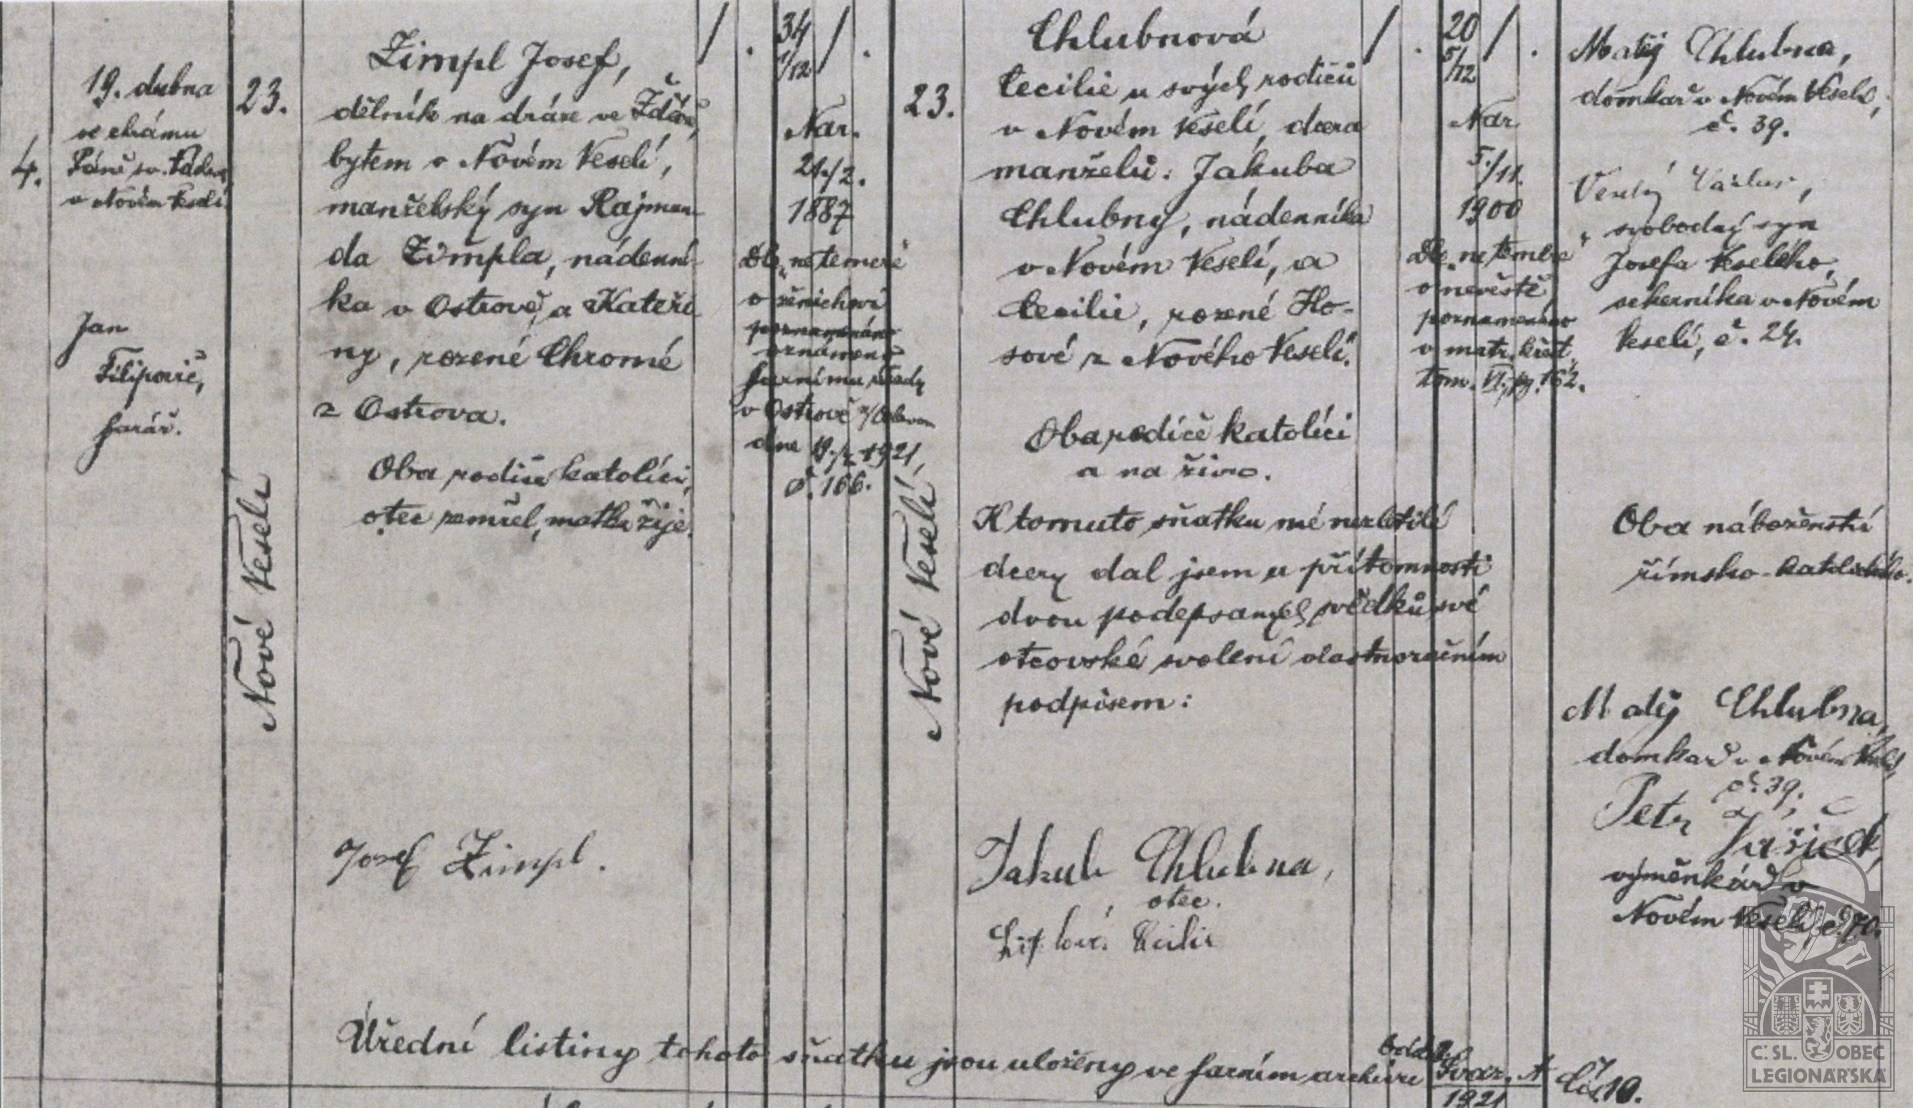 4.
19. dubna
ve chrámu
Páně sv. Václava
v Novém Veselí
Jan
Filipovič,
farář.
23.
Nové Veselí
Zimpl Josef,
dělník na dráze ve Žďáře,
bytem v Novém Veselí,
manželský syn Rajmun-
da Zimpla, nádenní-
ka v Ostrově, a Kateři-
ny, rozené Chromé
z Ostrova.
Oba rodiče katolíci,
otec zemřel, matka žije.
Josef Zimpl.
34
1/12
Nar.
21./2.
1887
o ženichovi
poznamenáno
oznámeno
farnímu úřadu
v Ostrově
dne 1921,
č. 166.
23.
Nové Veselí
Chlubnová
Cecilie u svých rodičů
v Novém Veselí, dcera
manželů: Jakuba
Chlubny, nádenníka
v Novém Veselí, a
Cecilie, rozené Ho-
sové z Nového Veselí.
Oba rodiče katolíci
a na živu.
K tomuto sňatku mé nezletilé
dcery dal jsem u přítomnosti
dvou podepsaných svědků své
otcovské svolení vlastnoručním
podpisem:
Jakub Chlubna,
otec.
Cecilie
20
5/12
Nar
5./11.
1900
o nevěstě
poznamenáno
v matr. křest.
tom. VI. pg. 162.
Matěj Chlubna,
domkař v Novém Veselí,
č. 39.
Veselý Václav,
svobodný syn
Josefa Veselého,
sekerníka v Novém
Veselí, č. 24.
Oba náboženství
římsko-katolického.
Matěj Chlubna,
domkař v Novém Veselí,
č. 39.
Petr
výměnkář v
Novém Veselí č. 70.
Úřední listiny tohoto sňatku jsou uloženy ve farním archivu Svaz. A
1921
Čís. 10.
Č: SL. OBEC
LEGIONÁŘSKÁ